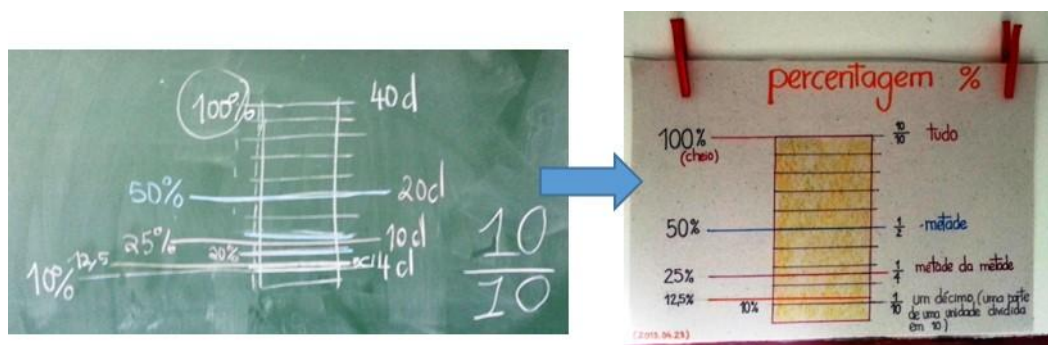 100% 40cl
50% 20cl
25% 10cl
20%
12,5
10% 4cl
10
10
percentagem %
100% 10/10 tudo
(cheio)
50% 1/2 -metade
25% 1/4 metade da metade
12,5%
10% 1/10 um décimo, (uma parte
de uma unidade dividida
em 10)